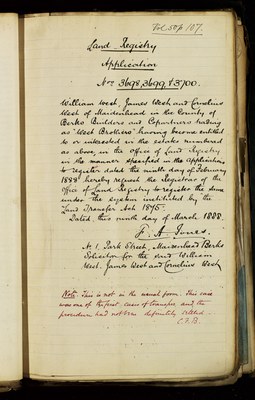 Vol 50 p 107.
Land Registry
Application
Nos 3698, 3699, & 3700.
William West, James West and Cornelius
West of Maidenhead in the County of
Berks Builders and Copartners trading
as "West Brothers" having become entitled
to or interested in the estates numbered
as above, in the office of Land Registry
in the manner specified in the application
to register dated the ninth day of February
1888 hereby request the Registrar of the
Office of Land Registry to register the same
under the system instituted by the
Land Transfer Act 1875.
Dated this ninth day of March 1888.
F. A. Jones.
No. 1 Park Street, Maidenhead Berks
Solicitor for the said William
West, James West and Cornelius West
Note This is not in the usual form. This case
was one of the first cases of transfer and the
procedure had not been definitely settled.